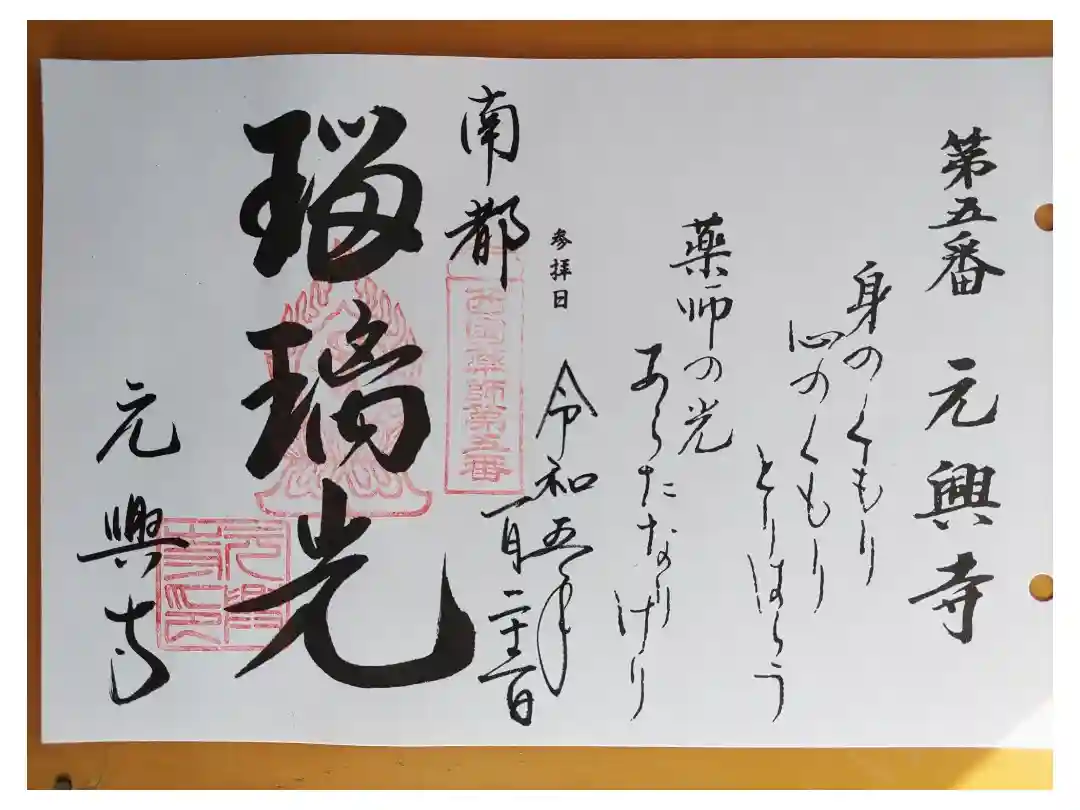 第五番 元興寺
身のくもり
心のくもり
とりはらう
薬師の光
あらたなりけり
参拝日 令和五年
南都
西國薬師第五番
瑠璃光
元興寺
元興寺印